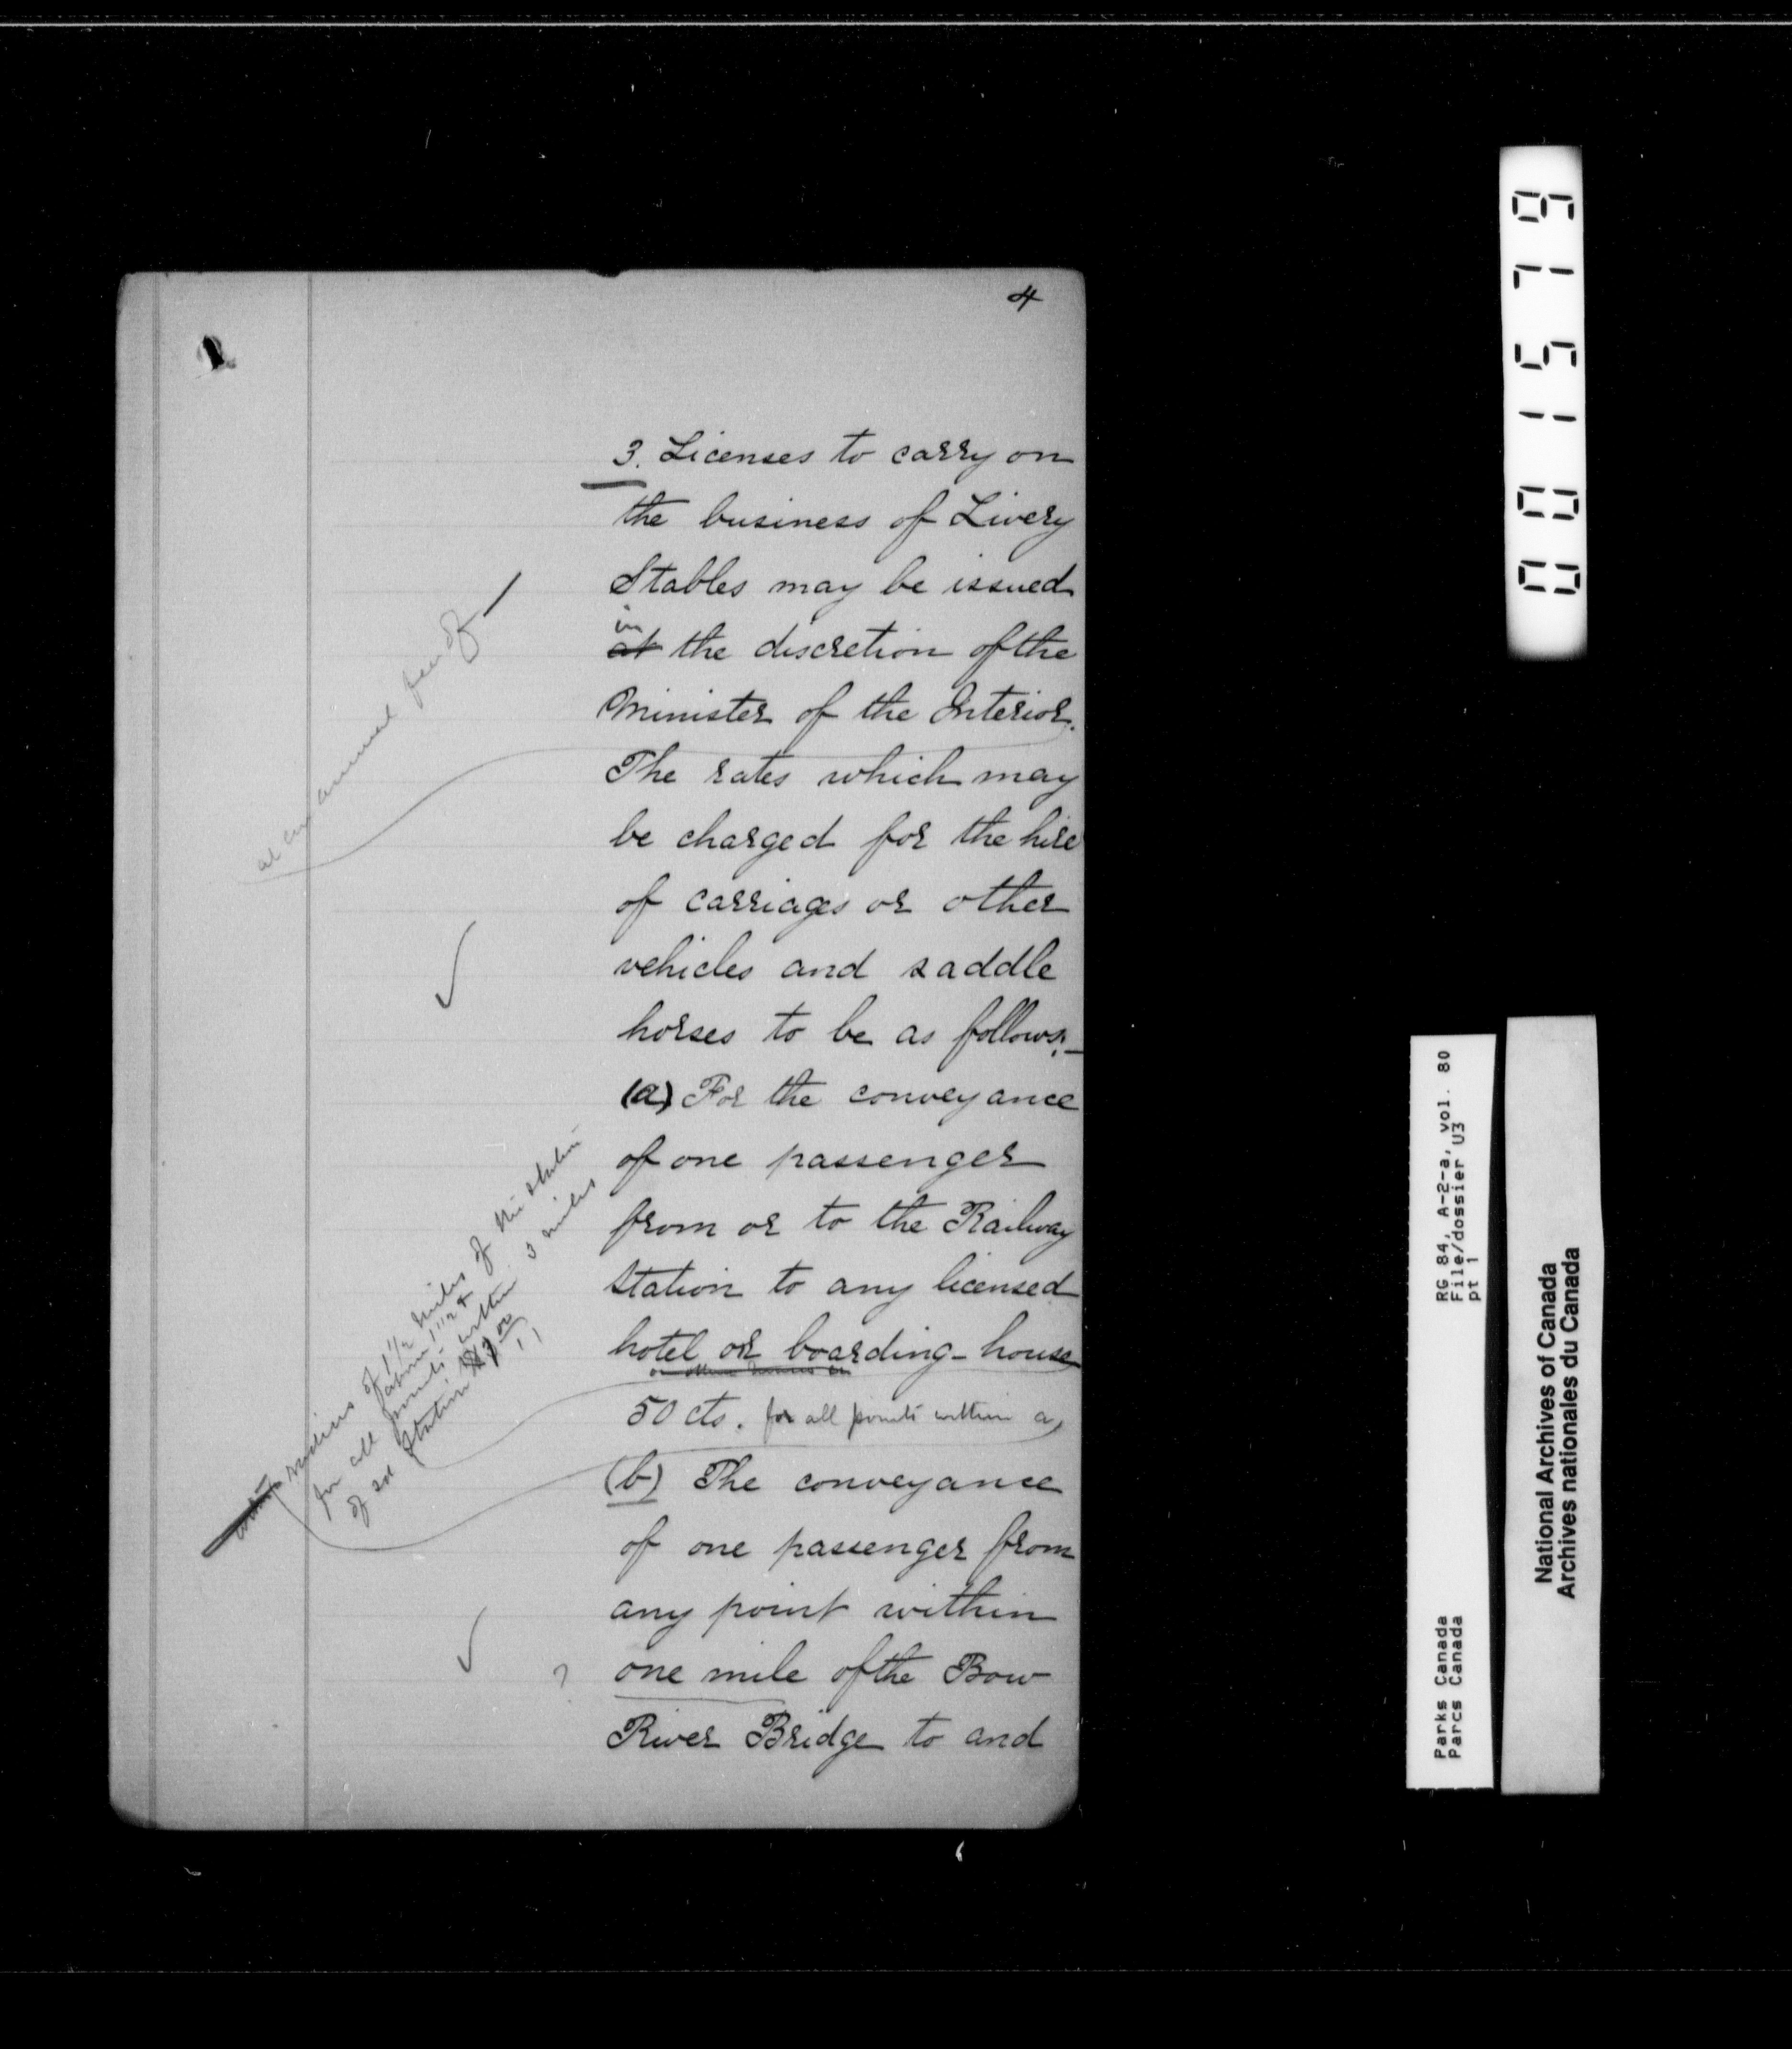 4
3. Licenses to carry on
the business of Livery
Stables may be issued
in
at the discretion of the
Minister of the Interior.
at an annual fee of
The rates which may
be charged for the hire
of carriages or other
vehicles and saddle
horses to be as follows:-
(a) For the conveyance
of one passenger
from or to the Railway
Station to any licensed
hotel or boarding-house
50 cts. for all points within a
radius of 1 1/2 miles of the station
above 1 1/2 &
for all points within 3 miles
of sd station
(b) The conveyance
of one passenger from
any point within
? one mile of the Bow
River Bridge to and
001579
RG 84, A-2-a, vol. 80
File/dossier U3
pt 1
Parks Canada
Parcs Canada
National Archives of Canada
Archives nationales du Canada